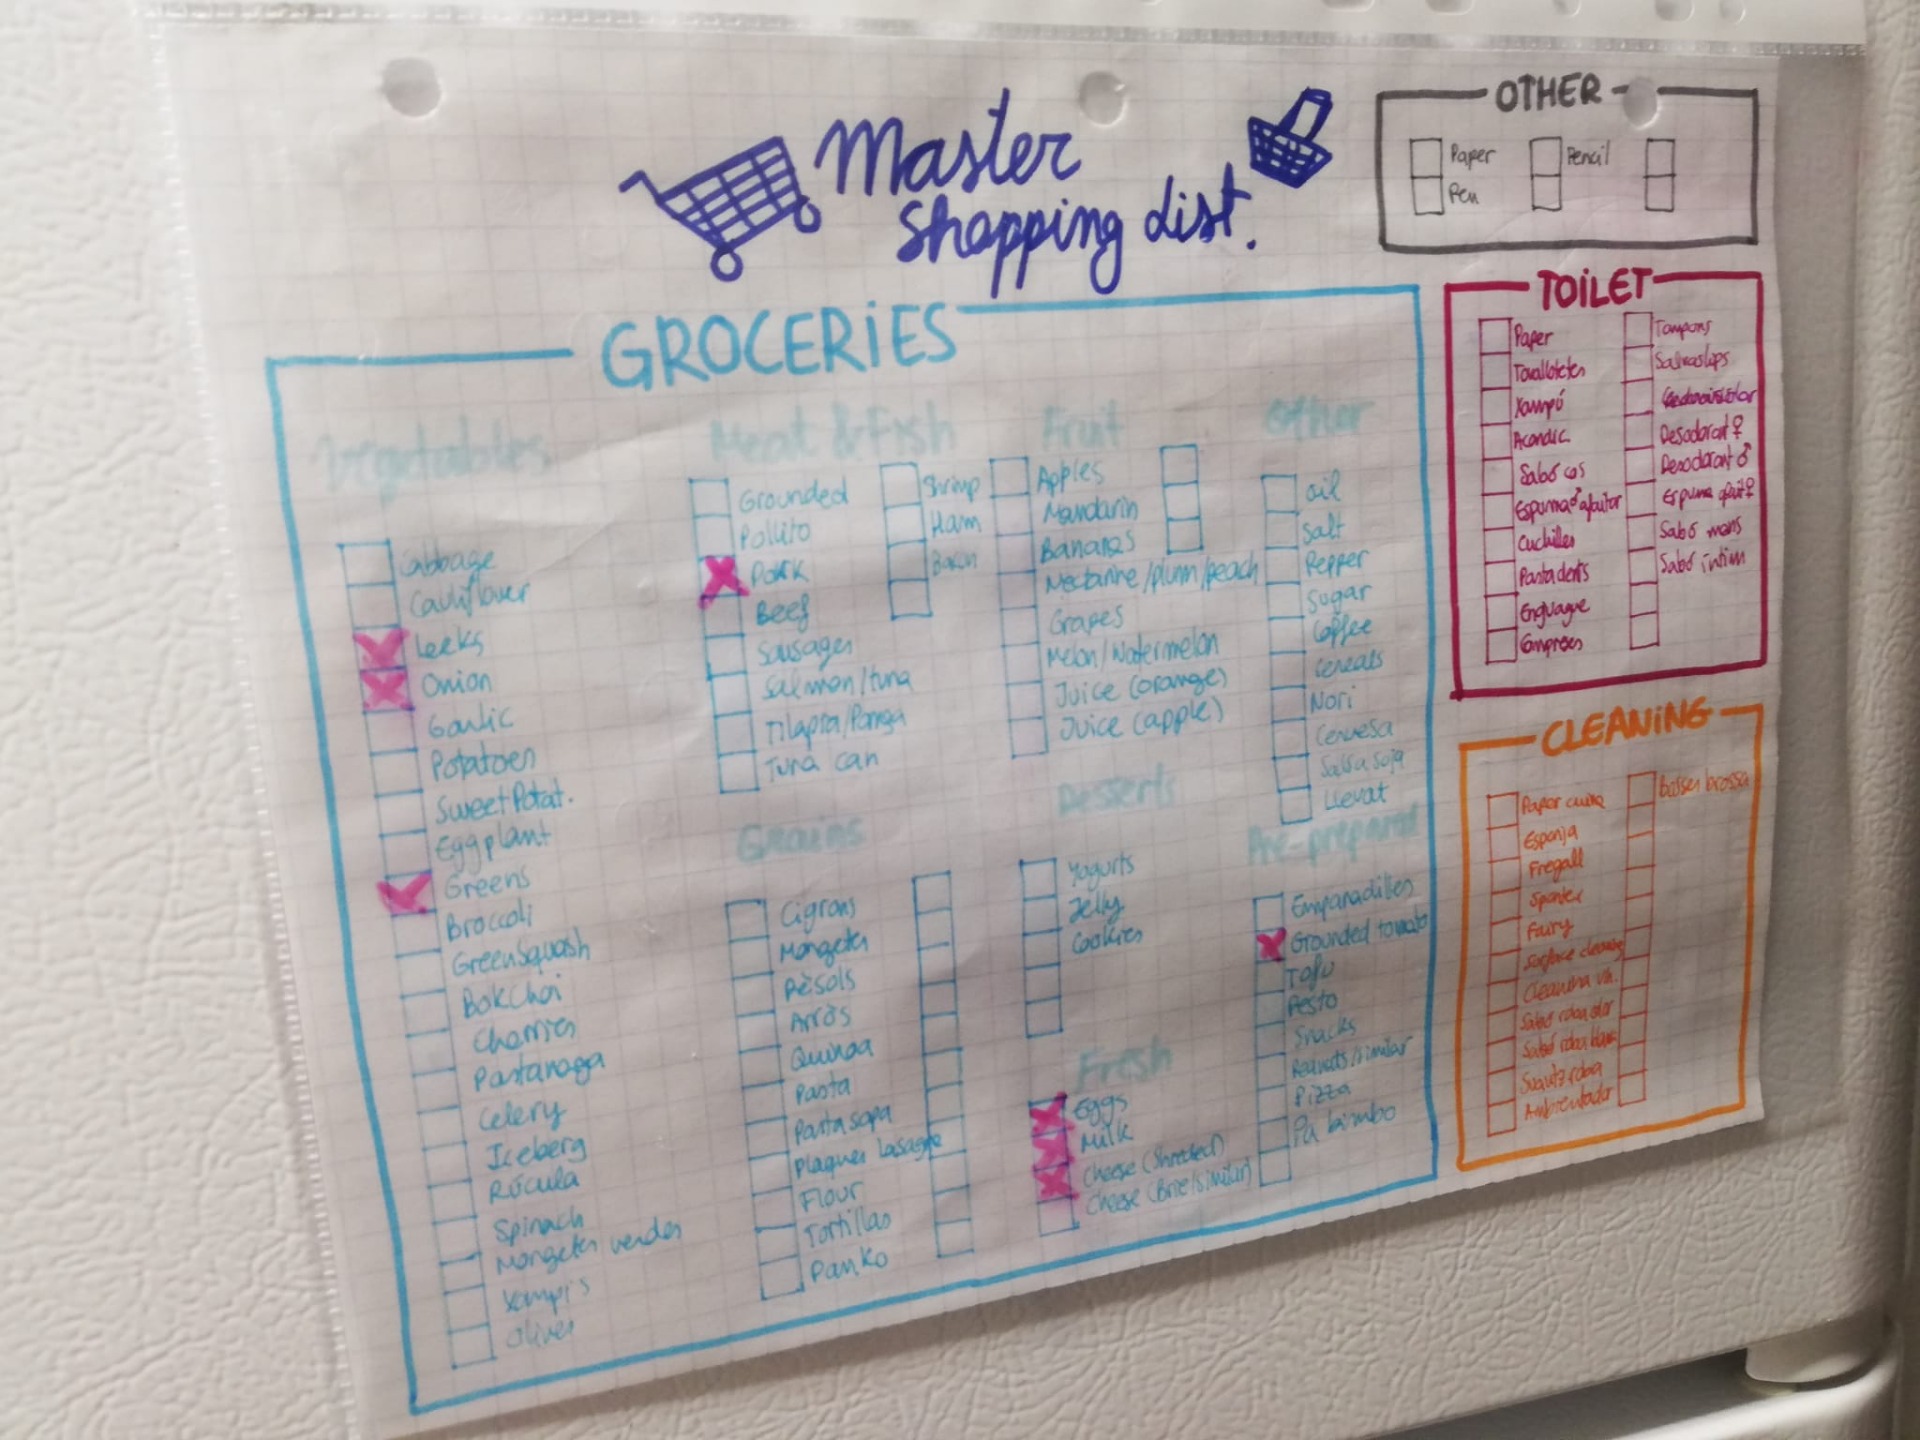 Master
Shopping List.
OTHER
Paper
Pencil
Pen
GROCERIES
Vegetables
Cabbage
Cauliflower
Leeks
Onion
Garlic
Potatoes
Sweet Potat.
Eggplant
Greens
Broccoli
Green Squash
Bok Choi
Cherries
Pastanaga
Celery
Iceberg
Rúcula
Spinach
Mongetes verdes
Xampi's
Olives
Meat & Fish
Grounded
Pollito
Pork
Beef
Sausages
Salmon/tuna
Tilapia/Panga
Tuna can
Shrimp
Ham
Bacon
Grains
Cigrons
Mongetes
Pèsols
Arròs
Quinoa
Pasta
Pasta sopa
Plaques lasagne
Flour
Tortillas
Panko
Fruit
Apples
Mandarin
Bananas
Nectarine/plum/peach
Grapes
Melon/Watermelon
Juice (orange)
Juice (apple)
Desserts
Yogurts
Jelly
Cookies
Fresh
Eggs
Milk
Cheese (Shreded)
Cheese (Brie/similar)
Other
Oil
Salt
Pepper
Sugar
Coffee
Cereals
Nori
Cervesa
Salsa soja
Llevat
Pre-prepared
Empanadilles
Grounded tomato
Tofu
Pesto
Snacks
Pizza
Pa bimbo
TOILET
Paper
Tovalloletes
Xampú
Acondic.
Sabó cos
Espuma♂ afaitar
Cuchilles
Pasta dents
Enjuague
Compreses
Tampons
Salvaslips
Desodorant ♀
Desodorant ♂
Espuma afait♀
Sabó mans
Sabó íntim
CLEANING
Paper cuina
Esponja
Fregall
Spontex
Fairy
Surface cleaning
Sabó roba color
Sabó roba blanc
Suavitz roba
Ambientador
Bosses brossa